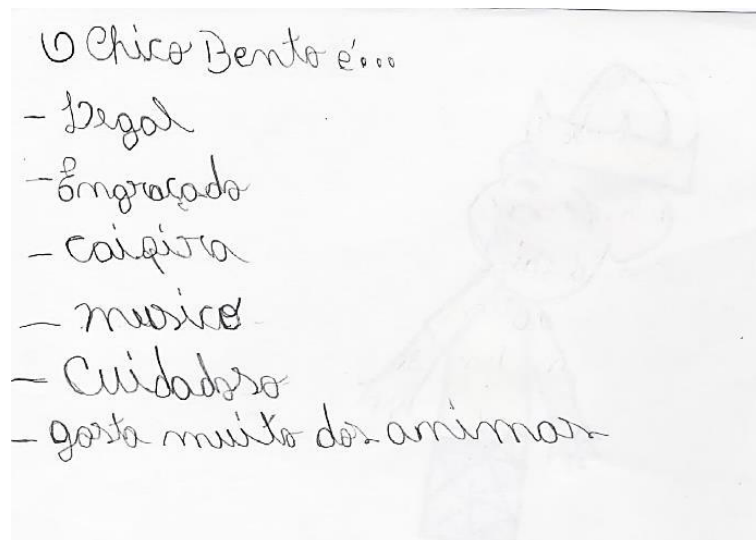 O Chico Bento é...
- Legal
- Engraçado
- caipira
- musico
- Cuidadoso
- gosta muito dos animais